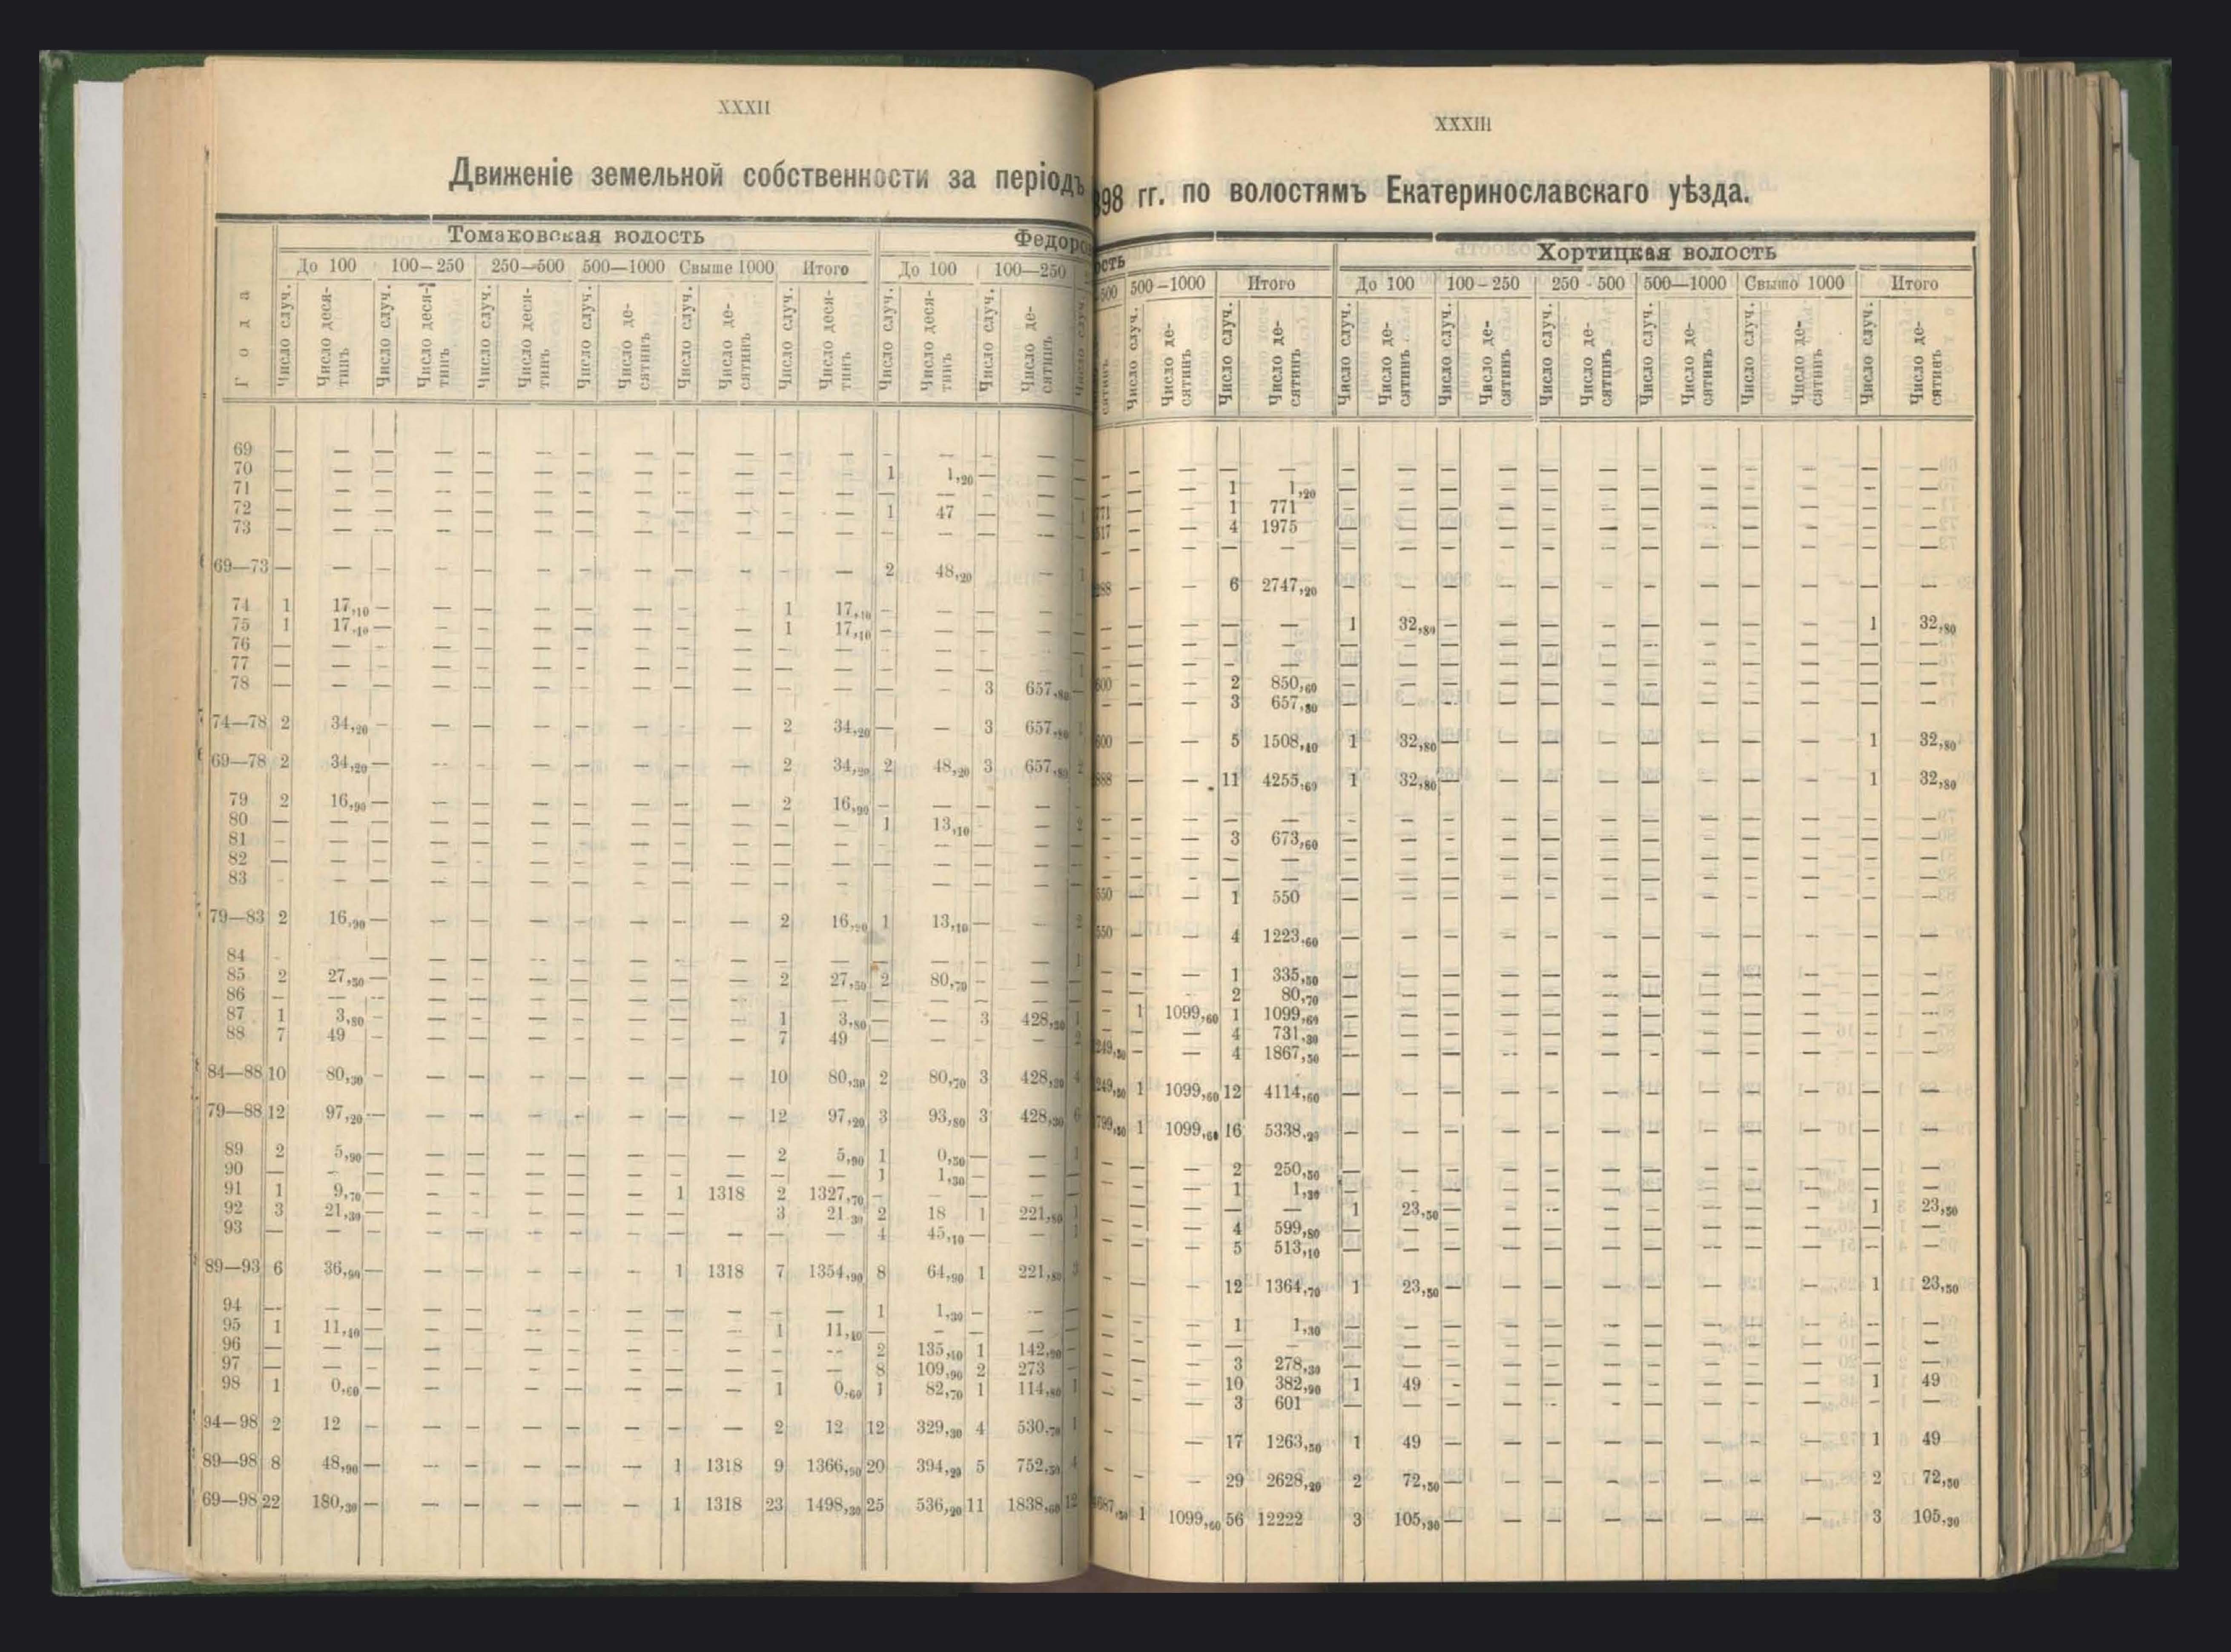 XXXII
Движеніе земельной собственности за періодъ
Томаковская волость Федоров
До 100 100—250 250—500 500—1000 Свыше 1000 Итого До 100 100—250
Года Число случ. Число деся-тинъ Число случ. Число деся-тинъ Число случ. Число деся-тинъ Число случ. Число де-сятинъ Число случ. Число де-сятинъ Число случ. Число деся-тинъ Число случ. Число деся-тинъ Число случ. Число де-сятинъ Число случ.
69 — — — — — — — — — — — — — — — —
70 — — — — — — — — — — — — 1 1,20 — —
71 — — — — — — — — — — — — — — — —
72 — — — — — — — — — — — — 1 47 — —
73 — — — — — — — — — — — — — — — —
69—73 — — — — — — — — — — — — 2 48,20 —
74 1 17,10 — — — — — — — — 1 17,10 — — — —
75 1 17,10 — — — — — — — — 1 17,10 — — — —
76 — — — — — — — — — — — — — — — —
77 — — — — — — — — — — — — — — — —
78 — — — — — — — — — — — — — — 3 657,80
74—78 2 34,20 — — — — — — — — 2 34,20 — — 3 657,80
69—78 2 34,20 — — — — — — — — 2 34,20 2 48,20 3 657,80 2
79 2 16,90 — — — — — — — — 2 16,90 — — — —
80 — — — — — — — — — — — — 1 13,10 — — 2
81 — — — — — — — — — — — — — — — —
82 — — — — — — — — — — — — — — — —
83 — — — — — — — — — — — — — — — —
79—83 2 16,90 — — — — — — — — 2 16,90 1 13,10 — — 2
84 — — — — — — — — — — — — — — — — 1
85 2 27,50 — — — — — — — — 2 27,50 2 80,70 — —
86 — — — — — — — — — — — — — — — —
87 1 3,80 — — — — — — — — 1 3,80 — — 3 428,30 1
88 7 49 — — — — — — — — 7 49 — — — — 2
84—88 10 80,30 — — — — — — — — 10 80,30 2 80,70 3 428,30 4
79—88 12 97,20 — — — — — — — — 12 97,20 3 93,80 3 428,30 6
89 2 5,90 — — — — — — — — 2 5,90 1 0,50 — — 1
90 — — — — — — — — — — — — 1 1,30 — —
91 1 9,70 — — — — — — 1 1318 2 1327,70 — — — —
92 3 21,30 — — — — — — — — 3 21,30 2 18 1 221,80 1
93 — — — — — — — — — — — — 4 45,10 — — 1
89—93 6 36,90 — — — — — — 1 1318 7 1354,90 8 64,90 1 221,80 3
94 — — — — — — — — — — — — 1 1,30 — —
95 1 11,40 — — — — — — — — 1 11,40 — — — —
96 — — — — — — — — — — — — 2 135,40 1 142,90 —
97 — — — — — — — — — — — — 8 109,90 2 273 —
98 1 0,60 — — — — — — — — 1 0,60 1 82,70 1 114,80 1
94—98 2 12 — — — — — — — — 2 12 12 329,30 4 530,70 1
89—98 8 48,90 — — — — — — 1 1318 9 1366,90 20 394,20 5 752,50 4
69—98 22 180,30 — — — — — — 1 1318 23 1498,30 25 536,20 11 1838,60 12
XXXIII
898 гг. по волостямъ Екатеринославскаго уѣзда.
ость Хортицкая волость
500 500—1000 Итого До 100 100—250 250—500 500—1000 Свыше 1000 Итого
сятинъ Число случ. Число де-сятинъ Число случ. Число де-сятинъ Число случ. Число де-сятинъ Число случ. Число де-сятинъ Число случ. Число де-сятинъ Число случ. Число де-сятинъ Число случ. Число де-сятинъ Число случ. Число де-сятинъ
— — — — — — — — — — — — — — — — —
— — — 1 1,20 — — — — — — — — — — — —
771 — — 1 771 — — — — — — — — — — — —
517 — — 4 1975 — — — — — — — — — — — —
— — — — — — — — — — — — — — — — —
288 — — 6 2747,20 — — — — — — — — — — — —
— — — — — 1 32,80 — — — — — — — — 1 32,80
— — — — — — — — — — — — — — — — —
— — — — — — — — — — — — — — — — —
600 — — 2 850,60 — — — — — — — — — — — —
— — — 3 657,80 — — — — — — — — — — — —
600 — — 5 1508,40 1 32,80 — — — — — — — — 1 32,80
888 — — 11 4255,60 1 32,80 — — — — — — — — 1 32,80
— — — — — — — — — — — — — — — — —
— — — 3 673,60 — — — — — — — — — — — —
— — — — — — — — — — — — — — — — —
— — — — — — — — — — — — — — — — —
550 — — 1 550 — — — — — — — — — — — —
550 — — 4 1223,60 — — — — — — — — — — — —
— — — 1 335,50 — — — — — — — — — — — —
— — — 2 80,70 — — — — — — — — — — — —
— 1 1099,60 1 1099,60 — — — — — — — — — — — —
— — — 4 731,30 — — — — — — — — — — — —
249,50 — — 4 1867,50 — — — — — — — — — — — —
249,50 1 1099,60 12 4114,60 — — — — — — — — — — — —
799,50 1 1099,60 16 5338,20 — — — — — — — — — — — —
— — — 2 250,50 — — — — — — — — — — — —
— — — 1 1,30 — — — — — — — — — — — —
— — — — — 1 23,50 — — — — — — — — 1 23,50
— — — 4 599,80 — — — — — — — — — — — —
— — — 5 513,10 — — — — — — — — — — — —
— — — 12 1364,70 1 23,50 — — — — — — — — 1 23,50
— — — 1 1,30 — — — — — — — — — — — —
— — — — — — — — — — — — — — — — —
— — — 3 278,30 — — — — — — — — — — — —
— — — 10 382,90 1 49 — — — — — — — — 1 49
— — — 3 601 — — — — — — — — — — — —
— — — 17 1263,50 1 49 — — — — — — — — 1 49
— — — 29 2628,20 2 72,50 — — — — — — — — 2 72,50
687,50 1 1099,60 56 12222 3 105,30 — — — — — — — — 3 105,30